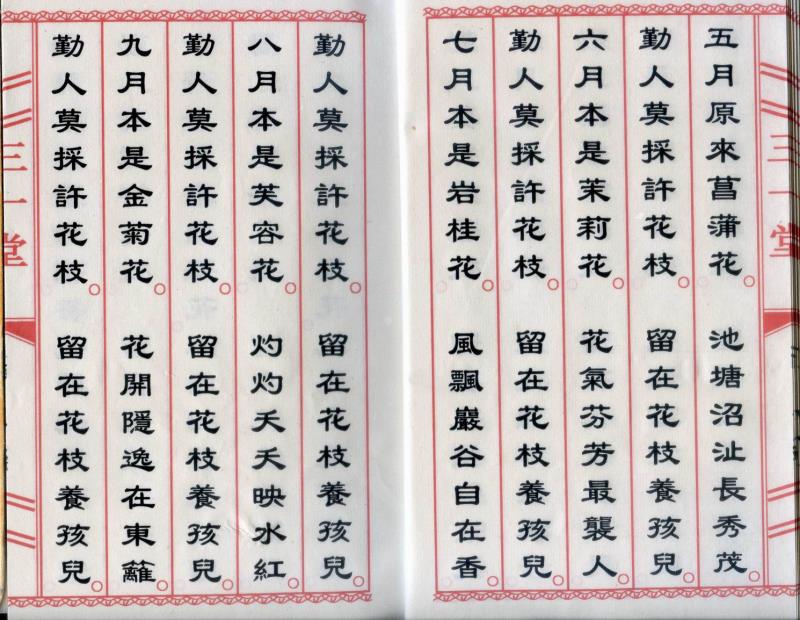 三一堂
五月原來菖蒲花。池塘沼沚長秀茂。
勤人莫採許花枝。留在花枝養孩兒。
六月本是茉莉花。花氣芬芳最襲人。
勤人莫採許花枝。留在花枝養孩兒。
七月本是岩桂花。風飄巖谷自在香。
勤人莫採許花枝。留在花枝養孩兒。
八月本是芙容花。灼灼夭夭映水紅。
勤人莫採許花枝。留在花枝養孩兒。
九月本是金菊花。花開隱逸在東籬。
勤人莫採許花枝。留在花枝養孩兒。
三一堂